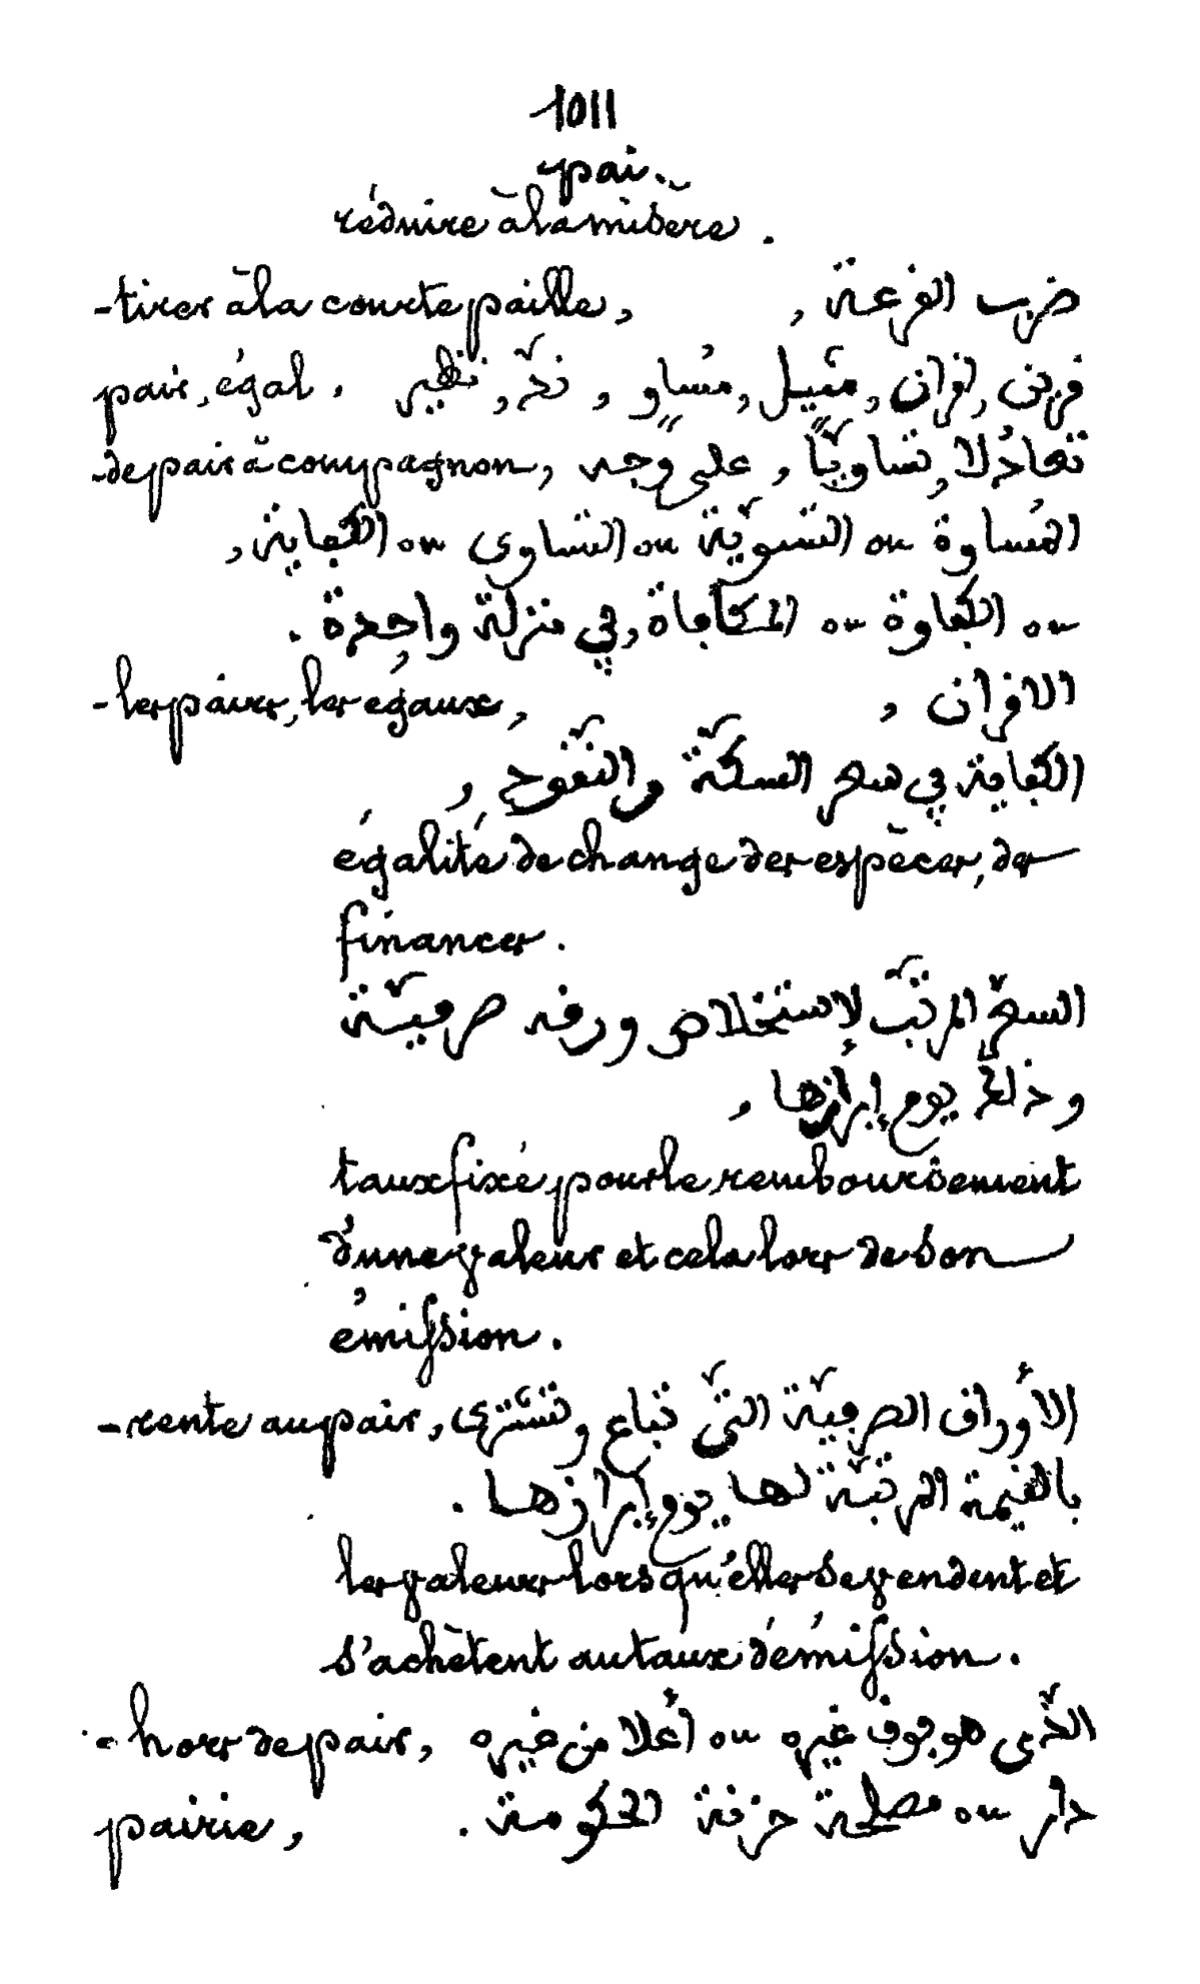 1011
pai.
réduire à la misère.
- tirer à la courte paille, ضرب القرعة,
pair, égal. قرين, اقران, مثيل, مُساوٍ, ندّ, نظير
- de pair à compagnon, تعادُلا, تساويًّا, على وجه
المُساوة ou التسويّة ou التساوى ou الكفاية,
ou الكفاوة ou المكافاة, في منزلة واحِدة.
- les pairs, les égaux, الاقران,
الكفاية في سعر السكّة والنقّوح,
égalité de change des espèces, des
finances.
السعر المرتّب لإستخلاص ورقه صرفيّة
وذلك يوم إبرازها,
taux fixé pour le remboursement
d'une valeur et cela lors de son
émission.
- rente au pair, الأوراق الصرفيّة التّي تباع وتشترى
بالقيمة المرتبّة لها يوم إبرازها.
les valeurs lorsqu'elles se vendent et
s'achètent au taux d'émission.
- hors de pair, الذّي هو فوق غيره ou أعلا من غيره
pairie, دار ou مصلحة حزنة الحكومة.